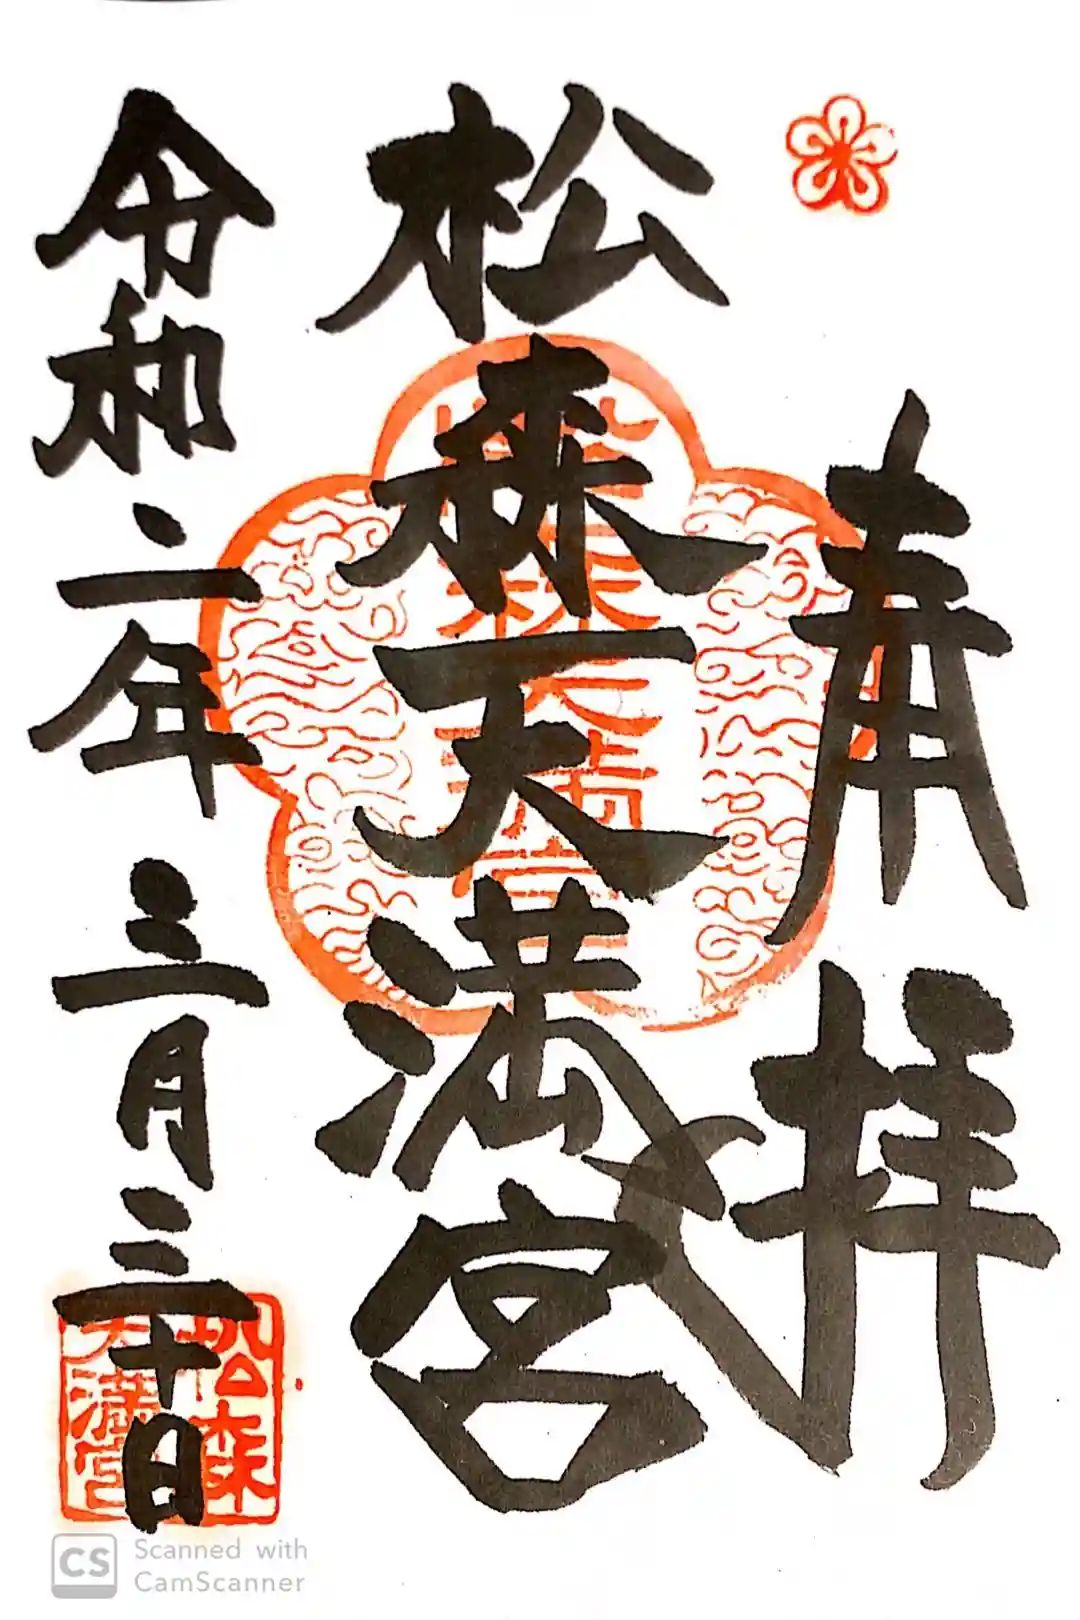 奉拝
松森天満宮
松森天満宮
令和二年三月三十日
松森
天満宮
CS Scanned with
CamScanner